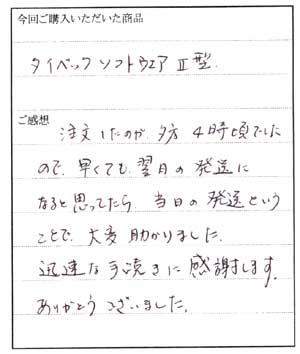 今回ご購入いただいた商品
タイベックソフトウエアⅡ型.
ご感想
注文したのが夕方4時頃でした
ので、早くても翌日の発送に
なると思ってたら、当日の発送という
ことで、大変助かりました.
迅速な手続きに感謝します.
ありがとうございました.